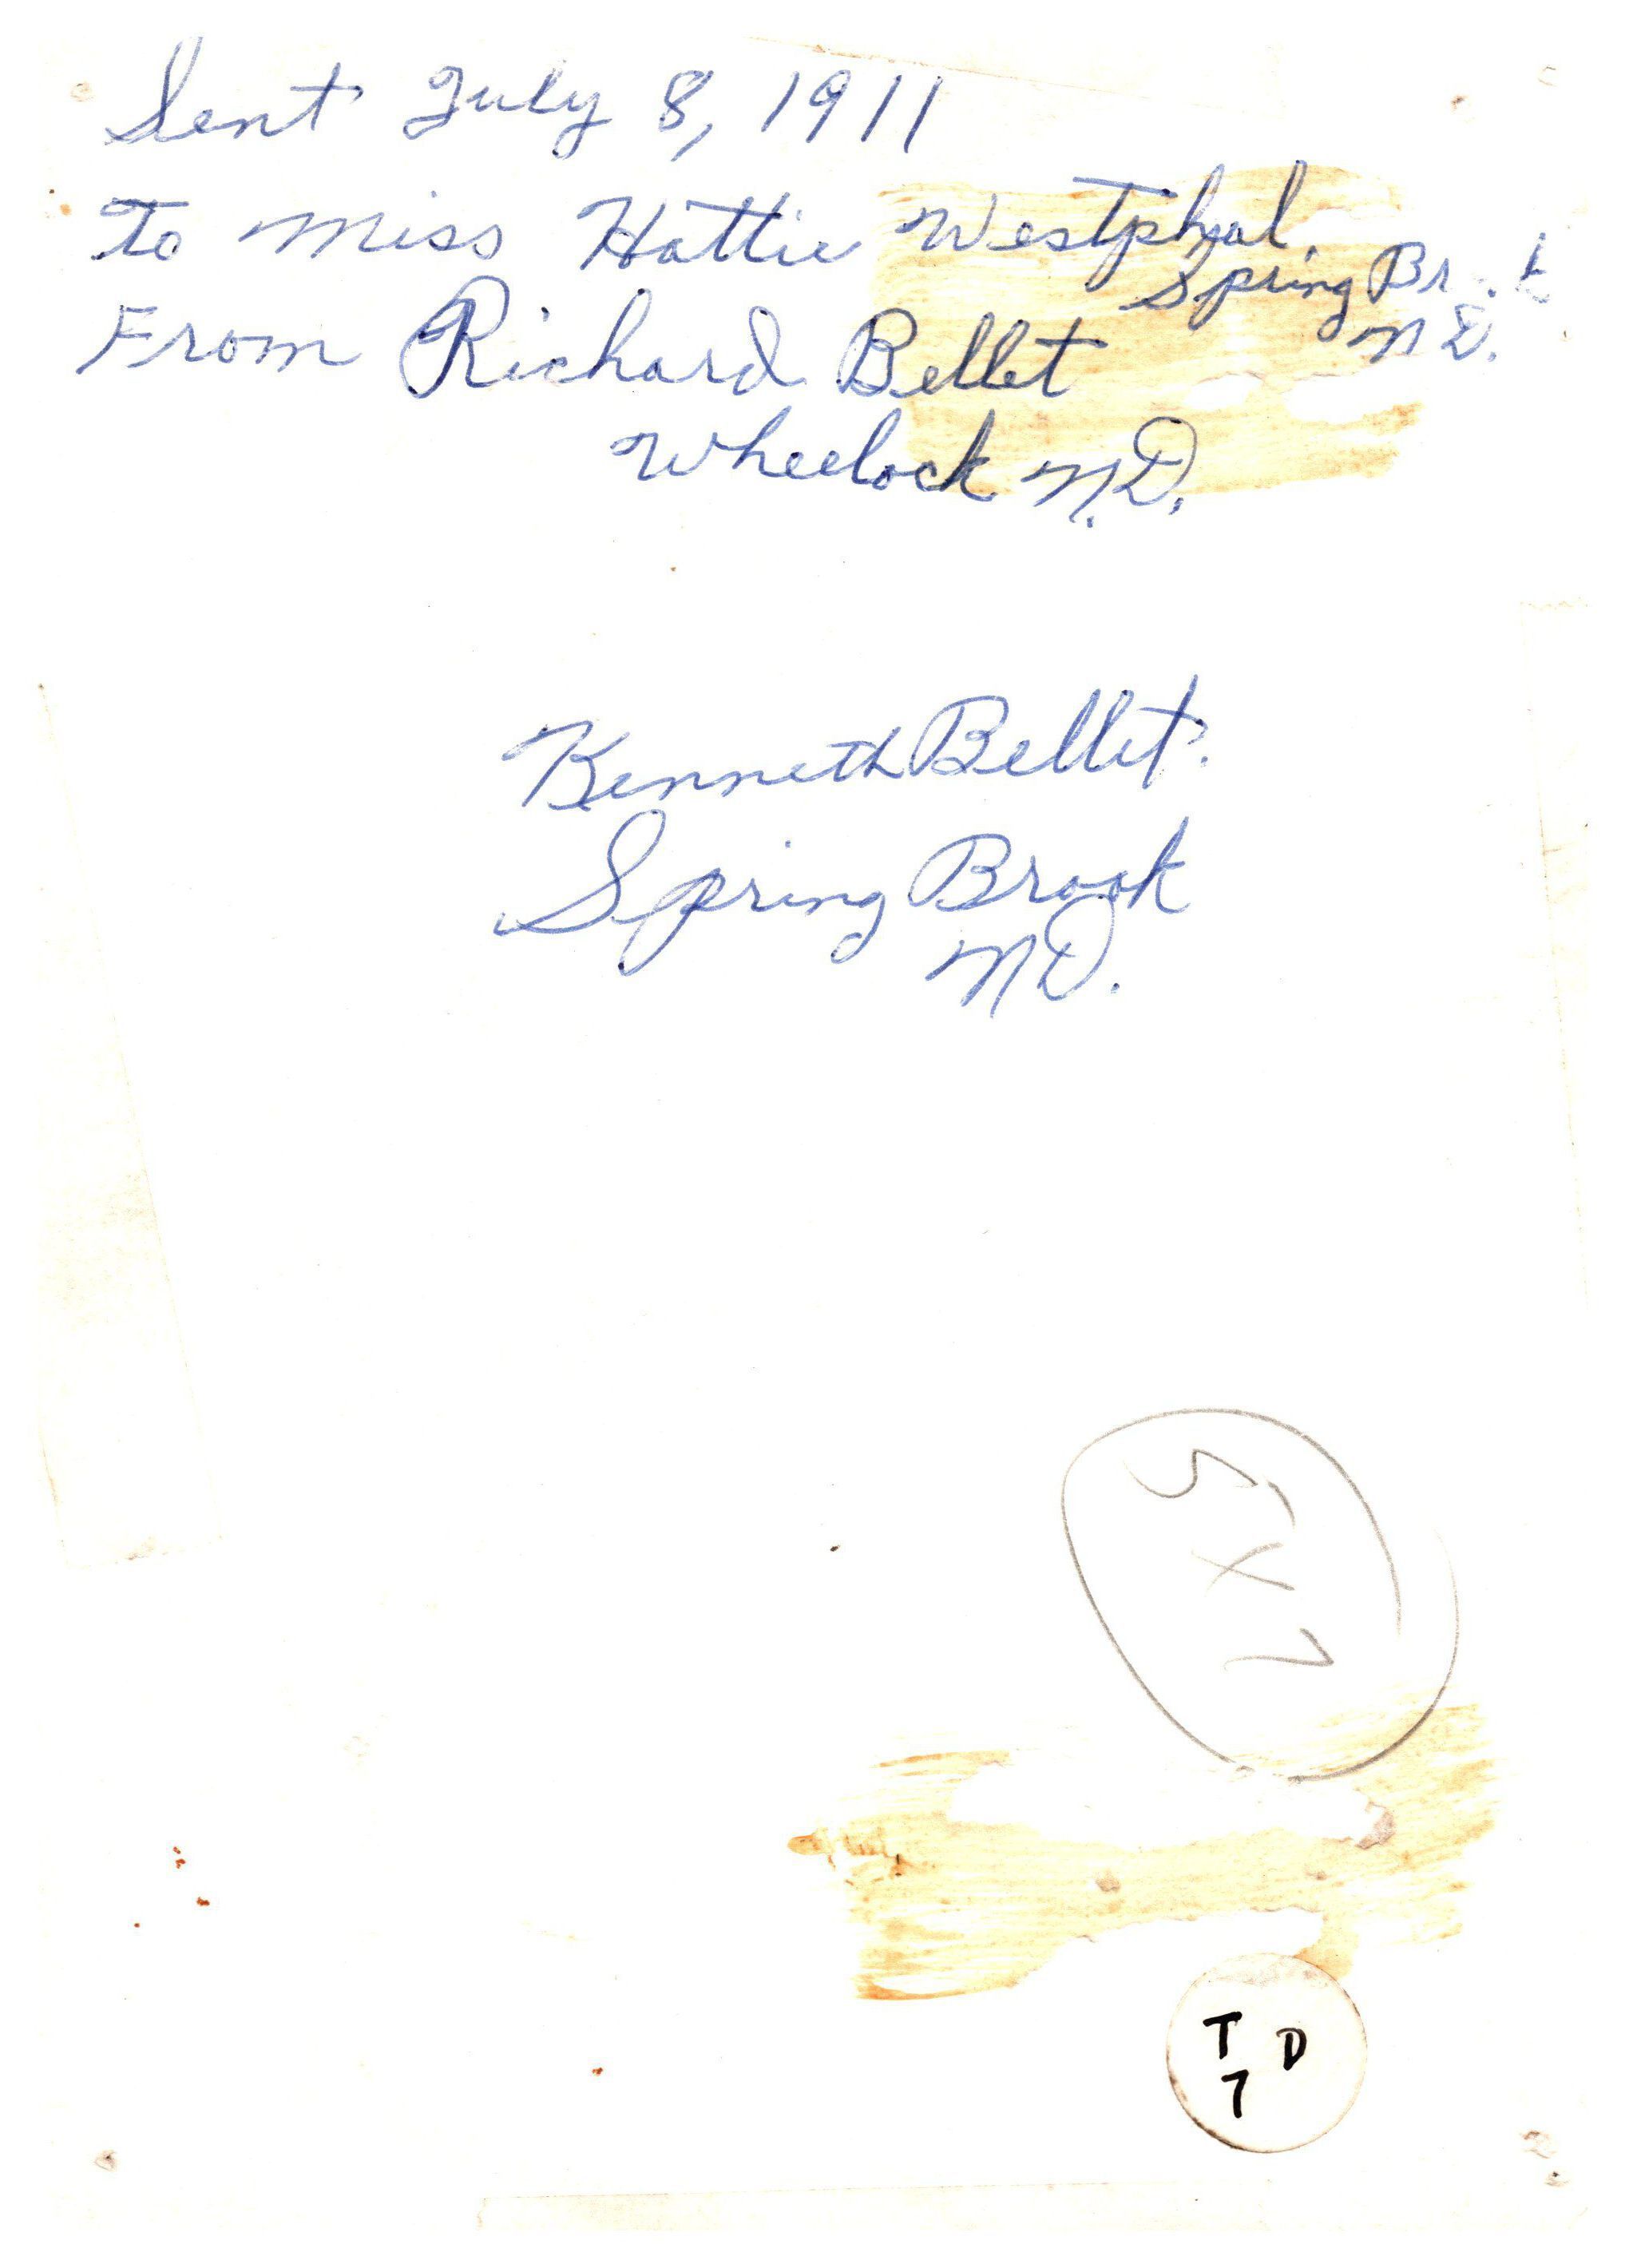 Sent July 8, 1911
To Miss Hattie Westphal.
Spring Br  k
N D.
From Richard Bellet
Wheelock N.D.
Kenneth Bellet.
Spring Brook
ND.
5X7
T D
7